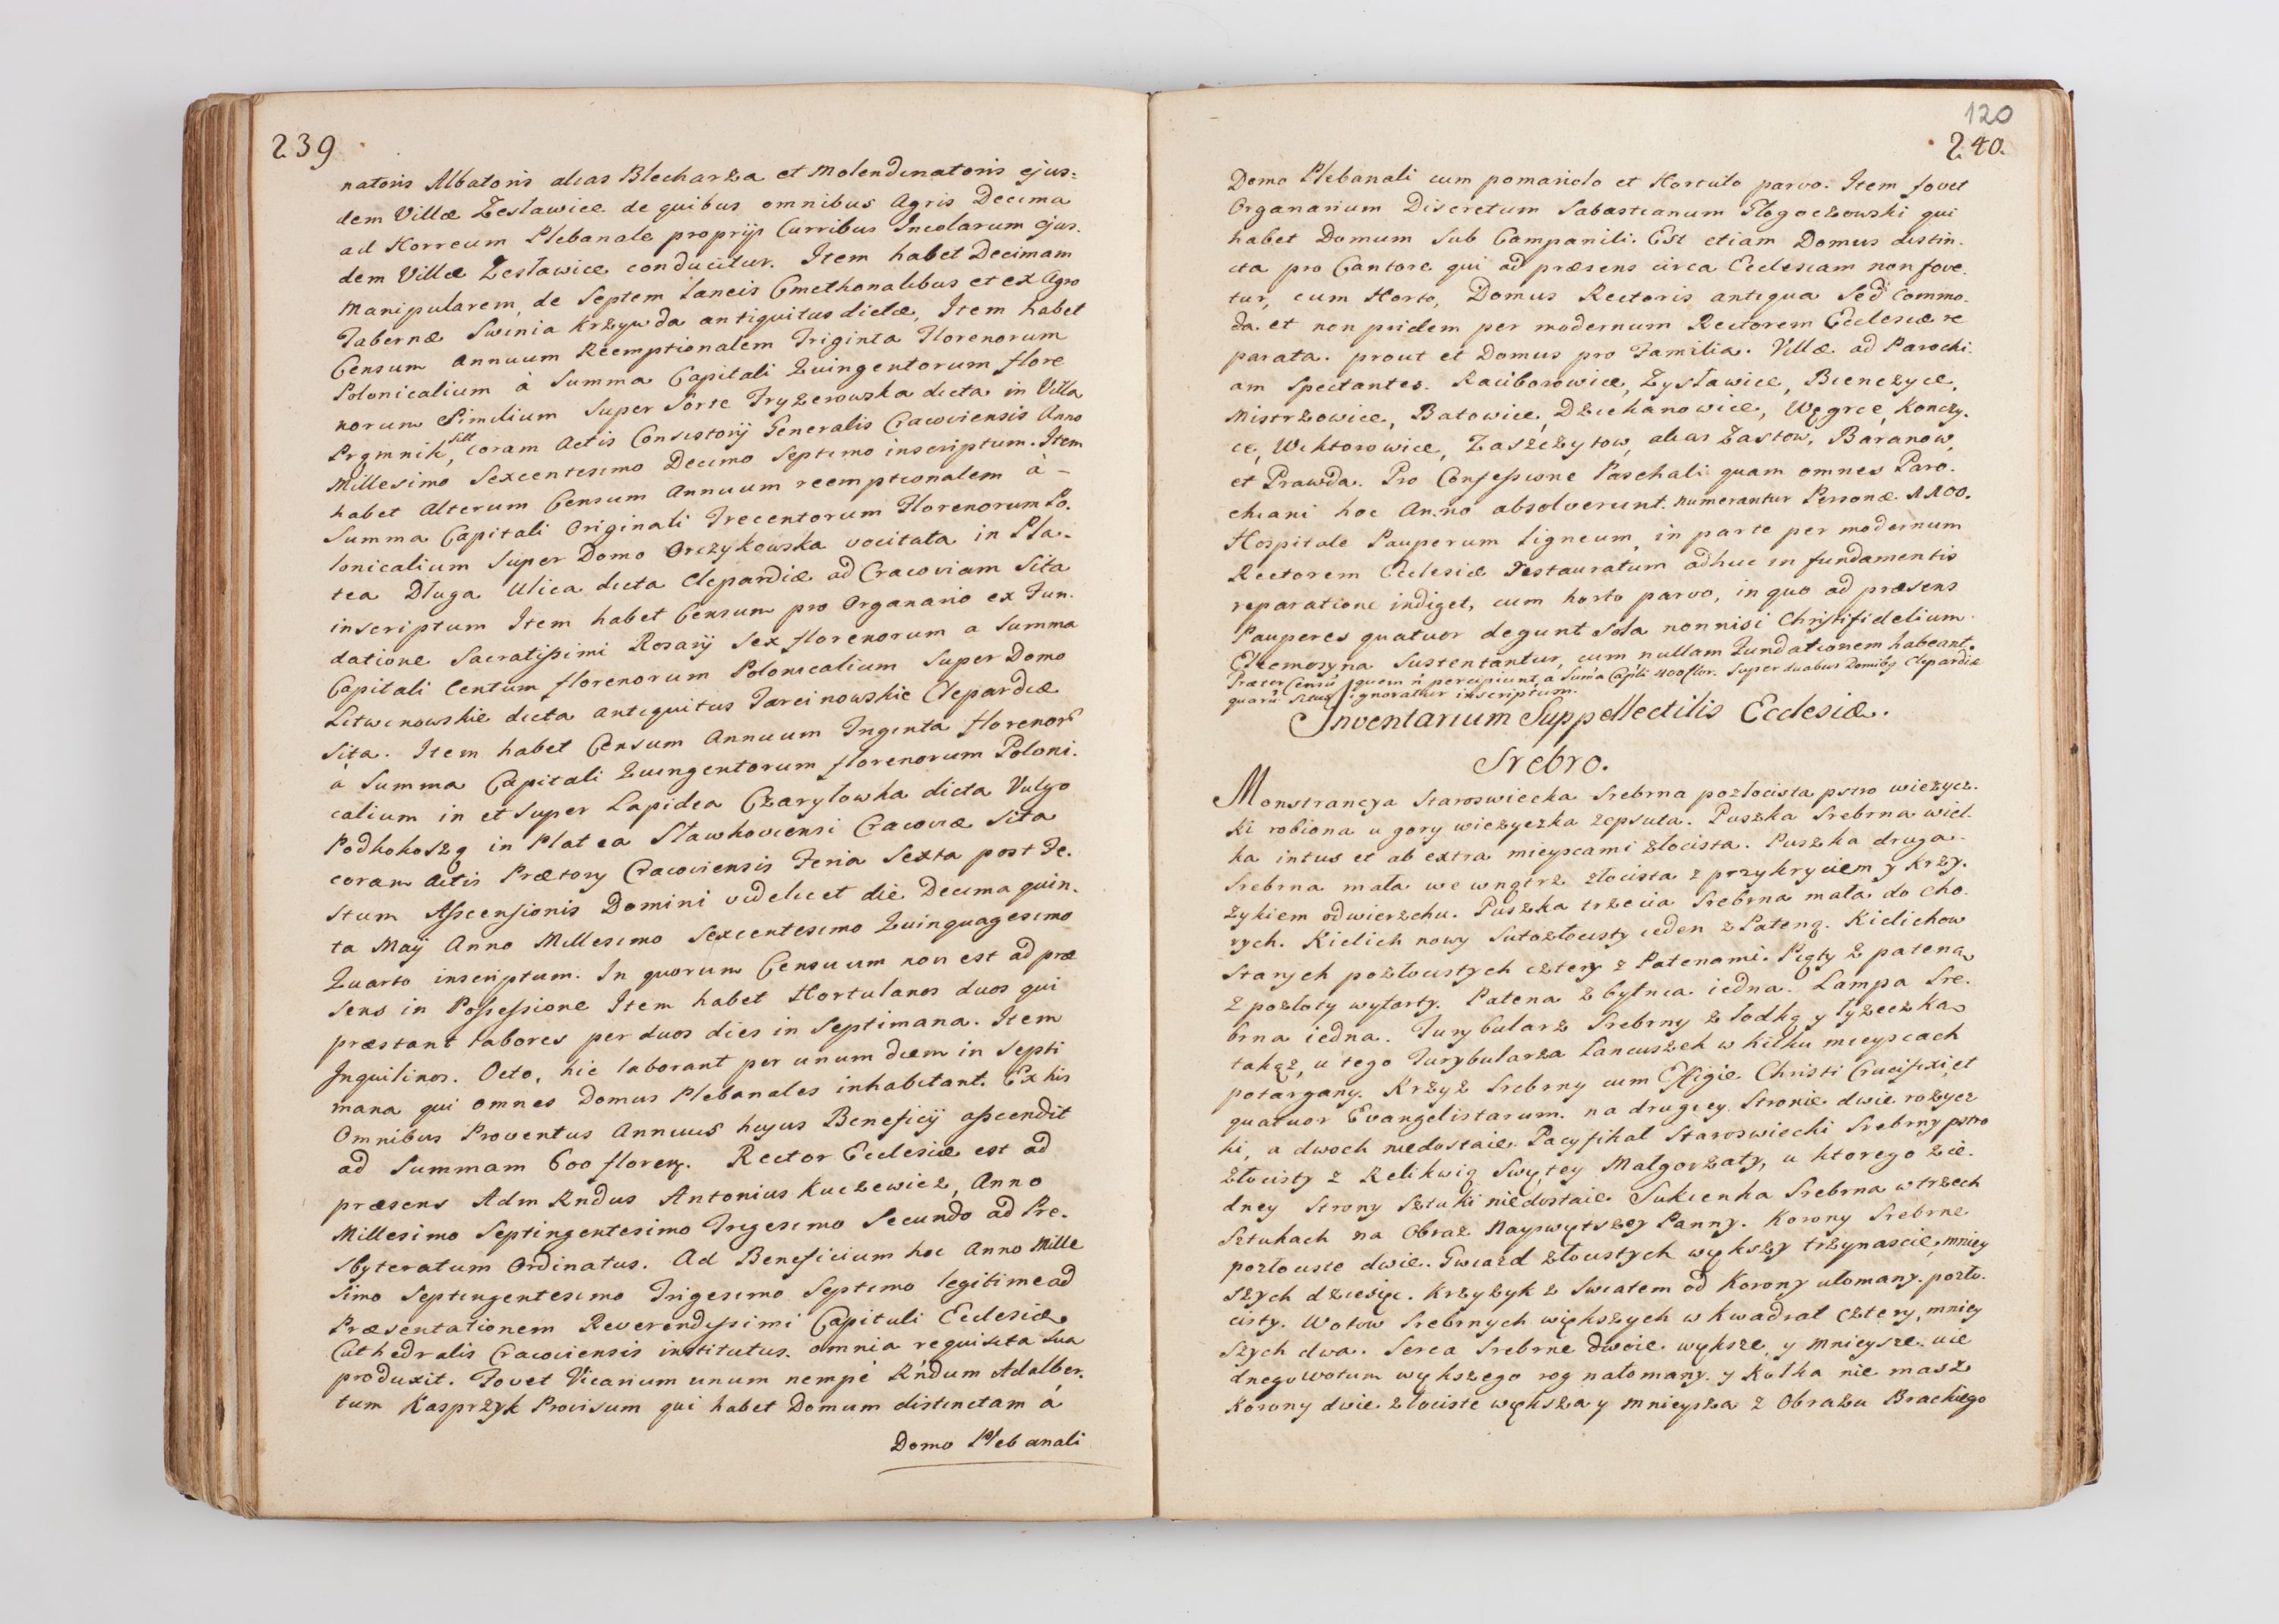 239
natoris Albatoris alias Blecharza et Molendinatoris ejus=
dem Villæ Zesławice de quibus omnibus Agris Decima
ad Horreum Plebanale proprijs Curribus Incolarum ejus.
dem Villæ Zesławice conducitur. Item habet Decimam
Manipularem, de Septem Laneis Cmethonalibus et ex Agro
Tabernæ Swinia Krzywda antiquitus dictæ, Item habet
Censum Annuum Reemptionalem Triginta Florenorum
Polonicalium à Summa Capitali Quingentorum flore
norum Similium Super Sorte Fryzerowska dicta in Villa
Prgmnik, coram Actis Consistorij Generalis Cracoviensis Anno
Millesimo Sexcentesimo Decimo Septimo inscriptum. Item
habet Alterum Censum Annuum reemptionalem à -
Summa Capitali Originali Trecentorum Florenorum Po.
lonicalium Super Domo Orczykowska vocitata in Pla-
tea Długa Ulica dicta Clepardiæ ad Cracoviam Sita
inscriptum Item habet Censum pro Organario ex Fun.
datione Sacratissimi Rosarij Sex florenorum a Summa
Capitali Centum florenorum Polonicalium Super Domo
Litwinowskie dicta antiquitus Tarcinowskie Clepardiæ
Sita. Item habet Censum Annuum Triginta florenor
à Summa Capitali Quingentorum florenorum Poloni.
calium in et Super Lapidea Czarylowka dicta Vulgo
Podkokoszą in Platea Sławkoviensi Cracoviæ Sita
coram Actis Prætorij Cracoviensis Feria Sexta post Fe.
stum Ascensionis Domini videlicet die Decima quin.
ta Maij Anno Millesimo Sexcentesimo Quinquagesimo
Quarto inscriptum. In quorum Censuum non est ad præ
sens in Possessione Item habet Hortulanos duos qui
præstant labores per duos dies in Septimana. Item
Inquilinos. Octo, hic laborant per unum diem in Septi
mana qui omnes Domus Plebanales inhabitant. Ex his
Omnibus Proventus Annuus hujus Beneficij ascendit
ad Summam 600 floren. Rector Ecclesiæ est ad
præsens Adm Rndus Antonius Kuczewicz, Anno
Millesimo Septingentesimo Trigesimo Secundo ad Pre.
sbyteratum Ordinatus. Ad Beneficium hoc Anno Mille
simo Septingentesimo Trigesimo Septimo legitime ad
Præsentationem Reverendissimi Capituli Ecclesiæ
Cathedralis Cracoviensis institutus. omnia requisita sua
produxit. Fovet Vicarium unum nempè Rndum Adalber.
tum Kasprzyk Provisum qui habet Domum distinctam à
Domo Plebanali
120
240.
Domo Plebanali cum pomariolo et Hortulo parvo. Item fovet
Organarium Discretum Sabastianum Głogoczowski qui
habet Domum Sub Campanili. Est etiam Domus distin.
cta pro Cantore qui ad præsens circa Ecclesiam non fove.
tur, cum Horto, Domus Rectoris antiqua Sed Commo.
da. et non pridem per modernum Rectorem Ecclesiæ re
parata. prout et Domus pro Familia. Villæ ad Parochi.
am Spectantes. Raciborowice, Zysławice, Bienczyce,
Mistrzowice, Batowice, Dziekanowice, Węgrce, Konczy.
ce, Wiktorowice, Zaszczytow, alias Zastow, Baranow,
et Prawda. Pro Confessione Paschali quam omnes Paro.
chiani hoc Anno absolverunt. numerantur Personæ 1100.
Hospitale Pauperum ligneum, in parte per modernum
Rectorem Ecclesiæ Restauratum adhuc in fundamentis
reparatione indiget, cum horto parvo, in quo ad præsens
Pauperes quatuor degunt Sola nonnisi Christifidelium
Elemosyna Sustentantur, cum nullam Fundationem habeant.
Præter Censũ quem ñ percipiunt, a Sum̃a Cap̃li 400 flor. Super duabus Domibꝫ Clepardiæ
quarũ Situs ignoratur inscriptum.
Inventarium Suppellectilis Ecclesiæ.
Srebro.
Monstrancya Staroswiecka Srebrna pozłocista pstro wiezycz.
ki robiona u gory wiezyczka zepsuta. Puszka Srebrna wiel.
ka intus et ab extra mieyscami złocista. Puszka druga
Srebrna mała we wngtrz złocista z przykryciem y krzy.
zykiem odwierzchu. Puszka trzecia Srebrna mała do cho.
rych. Kielich nowy Sutozłocisty ieden z Pateną. Kielichow
Starych pozłocistych cztery z Patenami. Piąty z patena
z pozłoty wytarty. Patena zbytnia iedna. Lampa Sre.
brna iedna. Turybularz Srebrny z łodką y łyzeczka
takąz, u tego Turybularza Lancuszek w kilku mieyscach
potargany. Krzyz Srebrny cum Effigie Christi Crucifixi, et
quatuor Evangelistarum. na drugiey Stronie dwie rozycz
ki, a dwoch niedostaie. Pacyfikał Staroswiecki Srebrny pstro
złocisty z Relikwią Swiętey Małgorzaty, u ktorego zie.
dney Strony Sztuki niedostaie Sukienka Srebrna w trzech
Sztukach na Obraz Nayswiętszey Panny. Korony Srebrne
pozłociste dwie. Gwiazd złocistych większy trzynascie, mniey
szych dziesięc. Krzyzyk z Swiatem od Korony ułomany. pozło.
cisty. Wotow Srebrnych większych w Kwadrat cztery, mniey
szych dwa. Serca Srebrne dwoie większe, y mnieysze. ie
dnego wotum większego rog nałomany. y Kołka nie masz
Korony dwie złociste większa y mnieysza z Obrazu Brackiego